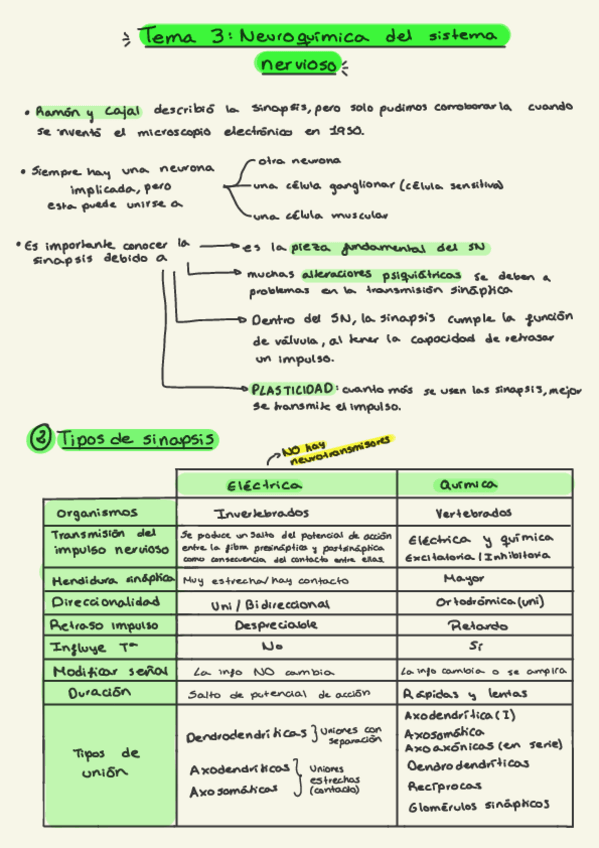 Tema 3: Neuroquímica del sistema
nervioso
• Ramón y Cajal describió la sinapsis, pero solo pudimos corroborarla cuando
se inventó el microscopio electrónico en 1950.
• Siempre hay una neurona
implicada, pero
esta puede unirse a
otra neurona
una célula ganglionar (célula sensitiva)
una célula muscular
• Es importante conocer la
sinapsis debido a
es la pieza fundamental del SN
muchas alteraciones psiquiátricas se deben a
problemas en la transmisión sináptica
Dentro del SN, la sinapsis cumple la función
de válvula, al tener la capacidad de retrasar
un impulso.
PLASTICIDAD: cuanto más se usen las sinapsis, mejor
se transmite el impulso.
2 Tipos de sinapsis
NO hay
neurotransmisores
Eléctrica
Química
Organismos
Invertebrados
Vertebrados
Transmisión del
impulso nervioso
Se produce un salto del potencial de acción
entre la fibra presináptica y postsináptica
como consecuencia del contacto entre ellas.
Eléctrica y química
Excitatoria / Inhibitoria
Hendidura sináptica
Muy estrecha/hay contacto
Mayor
Direccionalidad
Uni / Bidireccional
Ortodrómica (uni)
Retraso impulso
Despreciable
Retardo
Influye Tª
No
Sí
Modificar señal
La info NO cambia
La info cambia o se amplía
Duración
Salto de potencial de acción
Rápidas y lentas
Tipos de
unión
Dendrodendríticas
Uniones con
separación
Axodendríticas
Axosomáticas
Uniones
estrechas
(contacto)
Axodendrítica (I)
Axosomática
Axoaxónicas (en serie)
Dendrodendríticas
Recíprocas
Glomérulos sinápticos